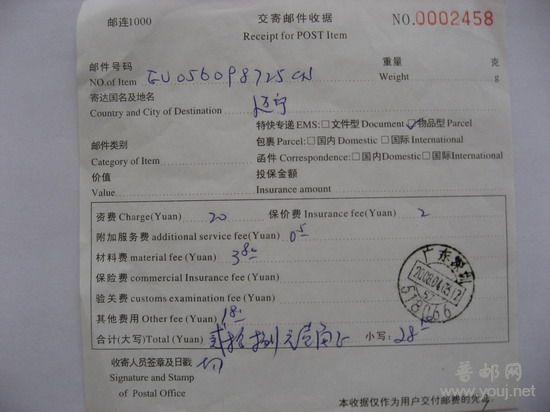 邮连1000 交寄邮件收据 NO.0002458
Receipt for POST Item
邮件号码 重量 克
NO.of Item EU056098725CN Weight g
寄达国名及地名
Country and City of Destination 辽宁
特快专递 EMS:□文件型Document ☑物品型Parcel
邮件类别 包裹 Parcel:□国内 Domestic □国际International
Category of Item 函件 Correspondence:□国内Domestic□国际International
价值 投保金额
Value Insurance amount
资费 Charge(Yuan) 20 保价费 Insurance fee(Yuan) 2
附加服务费 additional service fee(Yuan) 0.5
材料费 material fee(Yuan) 3.80
保险费 commercial Insurance fee(Yuan)
验关费 customs examination fee(Yuan)
其他费用 Other fee(Yuan)
合计(大写)Total(Yuan) 贰拾捌元壹角 小写: 28
广东
518066
收寄人员签章及日戳
Signature and Stamp
of Postal Office
本收据仅作为用户交付邮费的凭
普邮网
www.youj.net